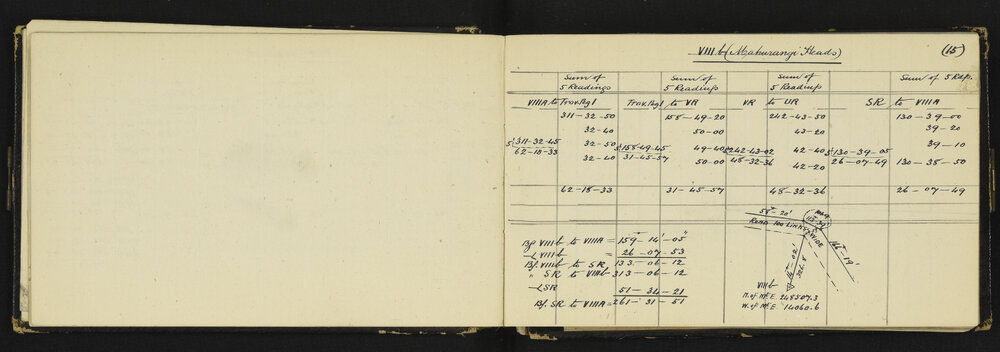 VIII b (Mahurangi Heads) (15)
Sum of 5 Readings Sum of 5 Readings Sum of 5 Readings Sum of 5 Rdgs.
VIIIA to Trav. Pgl Trav. Pgl to VR VR to UR SR to VIIIA
311-32-50 158-49-20 242-43-50 130-39-00
32-40 50-00 43-20 39-20
5)311-32-45 32-50 5)158-49-45 49-40 242-43-02 42-40 5)130-39-05 39-10
62-18-33 32-40 31-45-57 50-00 48-32-36 42-20 26-07-49 130-38-50
62-18-33 31-45-57 48-32-36 26-07-49
Bg VIIIb to VIIIA = 159°-14'-05"
∠ VIIIb = 26-07-53
Bg. VIIIb to SR 133-06-12
" SR to VIIIb 313-06-12
∠ SR 51-34-21
Bg. SR to VIIIA = 261-31-51
58°-20'
ROAD 100 LINKS WIDE
16°-19'
14°-02'
VIIIb
N. of Mt E. 248507.3
W. of Mt E. 14060.6